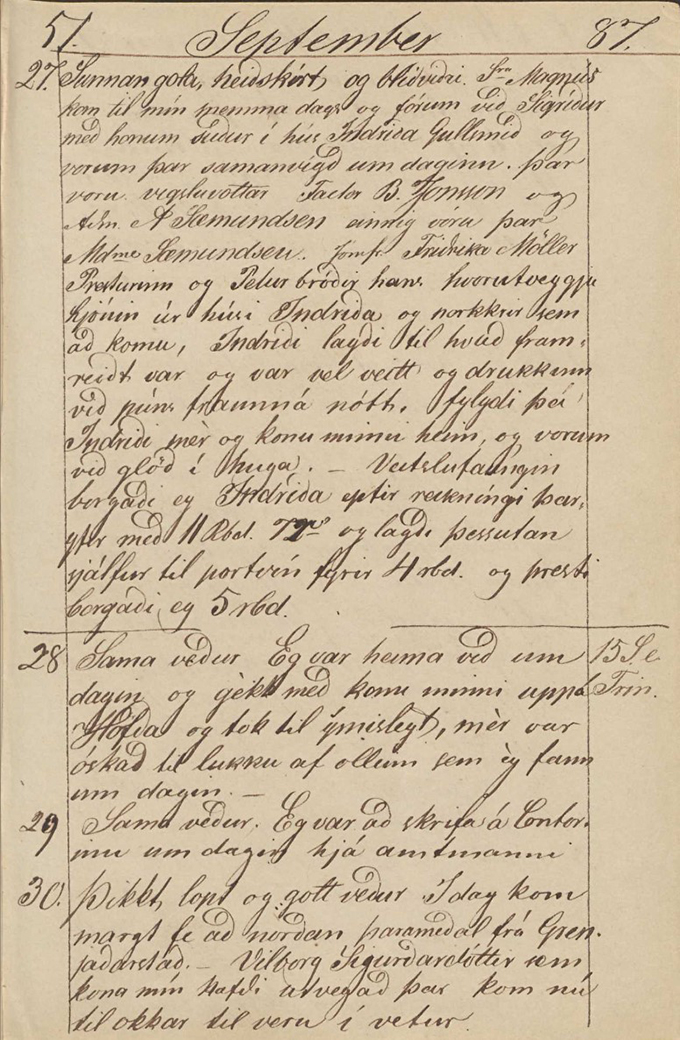 51. September 87.
27. Sunnan gola, heidskírt, og blídvidri. Sra Magnús
kom til mín snemma dags og fórum vid Sigrídur
med honum sudur í hús Indrida Gullsmid og
vorum þar samanvígd um daginn. þar
voru vígsluvottar Factor B. Jonsson og
Adm. A Sæmundsen einnig vóru þar
Mdme Sæmundsen. Jomfr. Fridrika Möller
Presturinn og Petur bródir hans hvorutveggju
hjónin úr húsi Indrida og nokkrir sem
ad komu, Indridi lagdi til hvad fram-
reidt var og var vel veitt og drukkinn
vid púns framm á nótt. fylgdi þá
Indridi mèr og konu minni heim, og vorum
vid glöd í huga. — Veitslufaungin
borgadi eg Indrida eptir reikníngi þar-
yfir med 11 Rbd. 72s og lagdi þessutan
sjálfur til portvín fyrir 4 rbd. og presti
borgadi eg 5 rbd.
28 Sama vedur Eg var heima vid um 15 S. e
dagin og gèkk med konu minni uppá Trin.
Höfda og tok til ýmislegt, mèr var
óskad til lukku af öllum sem èg fann
um dagin. —
29 Sama vedur. Eg var ad skrifa á Contór-
inu um dagin hjá amtmanni
30. Þikkt lopt og gott vedur I dag kom
margt fe ad nordan þaramedal frá Gren-
jadarstad. — Vilborg Sigurdardóttir sem
kona mín hafdi útvegad þar kom nú
til okkar til veru í vetur.